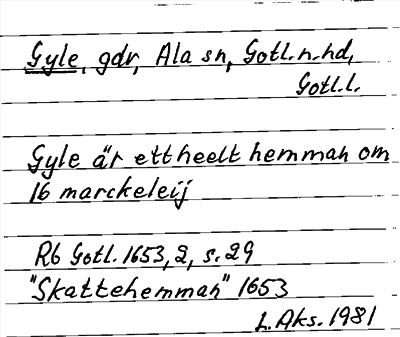 Gyle, gdr, Ala sn, Gotl.n.hd,
Gotl.l.
Gyle är ett heelt hemman om
16 marckeleij
Rb Gotl. 1653, 2, s. 29
"Skattehemman" 1653
L. Aks. 1981